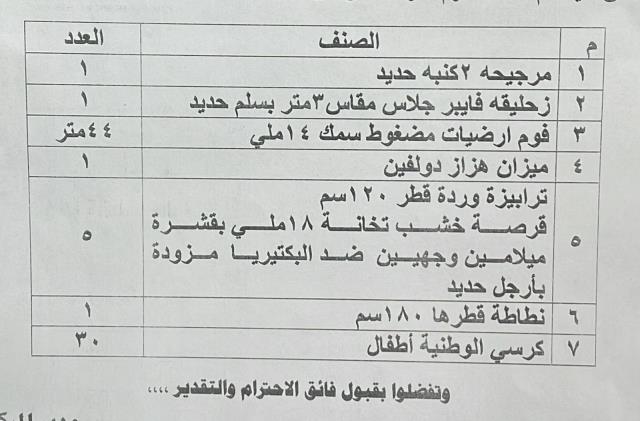 م الصنف العدد
١ مرجيحه ٢كنبه حديد ١
٢ زحليقه فايبر جلاس مقاس٣متر بسلم حديد ١
٣ فوم ارضيات مضغوط سمك ١٤ملي ٤٤متر
٤ ميزان هزاز دولفين ١
ترابيزة وردة قطر ١٢٠سم
قرصة خشب تخانة ١٨ملي بقشرة
٥ ميلامين وجهيين ضد البكتيريا مزودة ٥
بأرجل حديد
٦ نطاطة قطرها ١٨٠سم ١
٧ كرسي الوطنية أطفال ٣٠
وتفضلوا بقبول فائق الاحترام والتقدير ،،،،